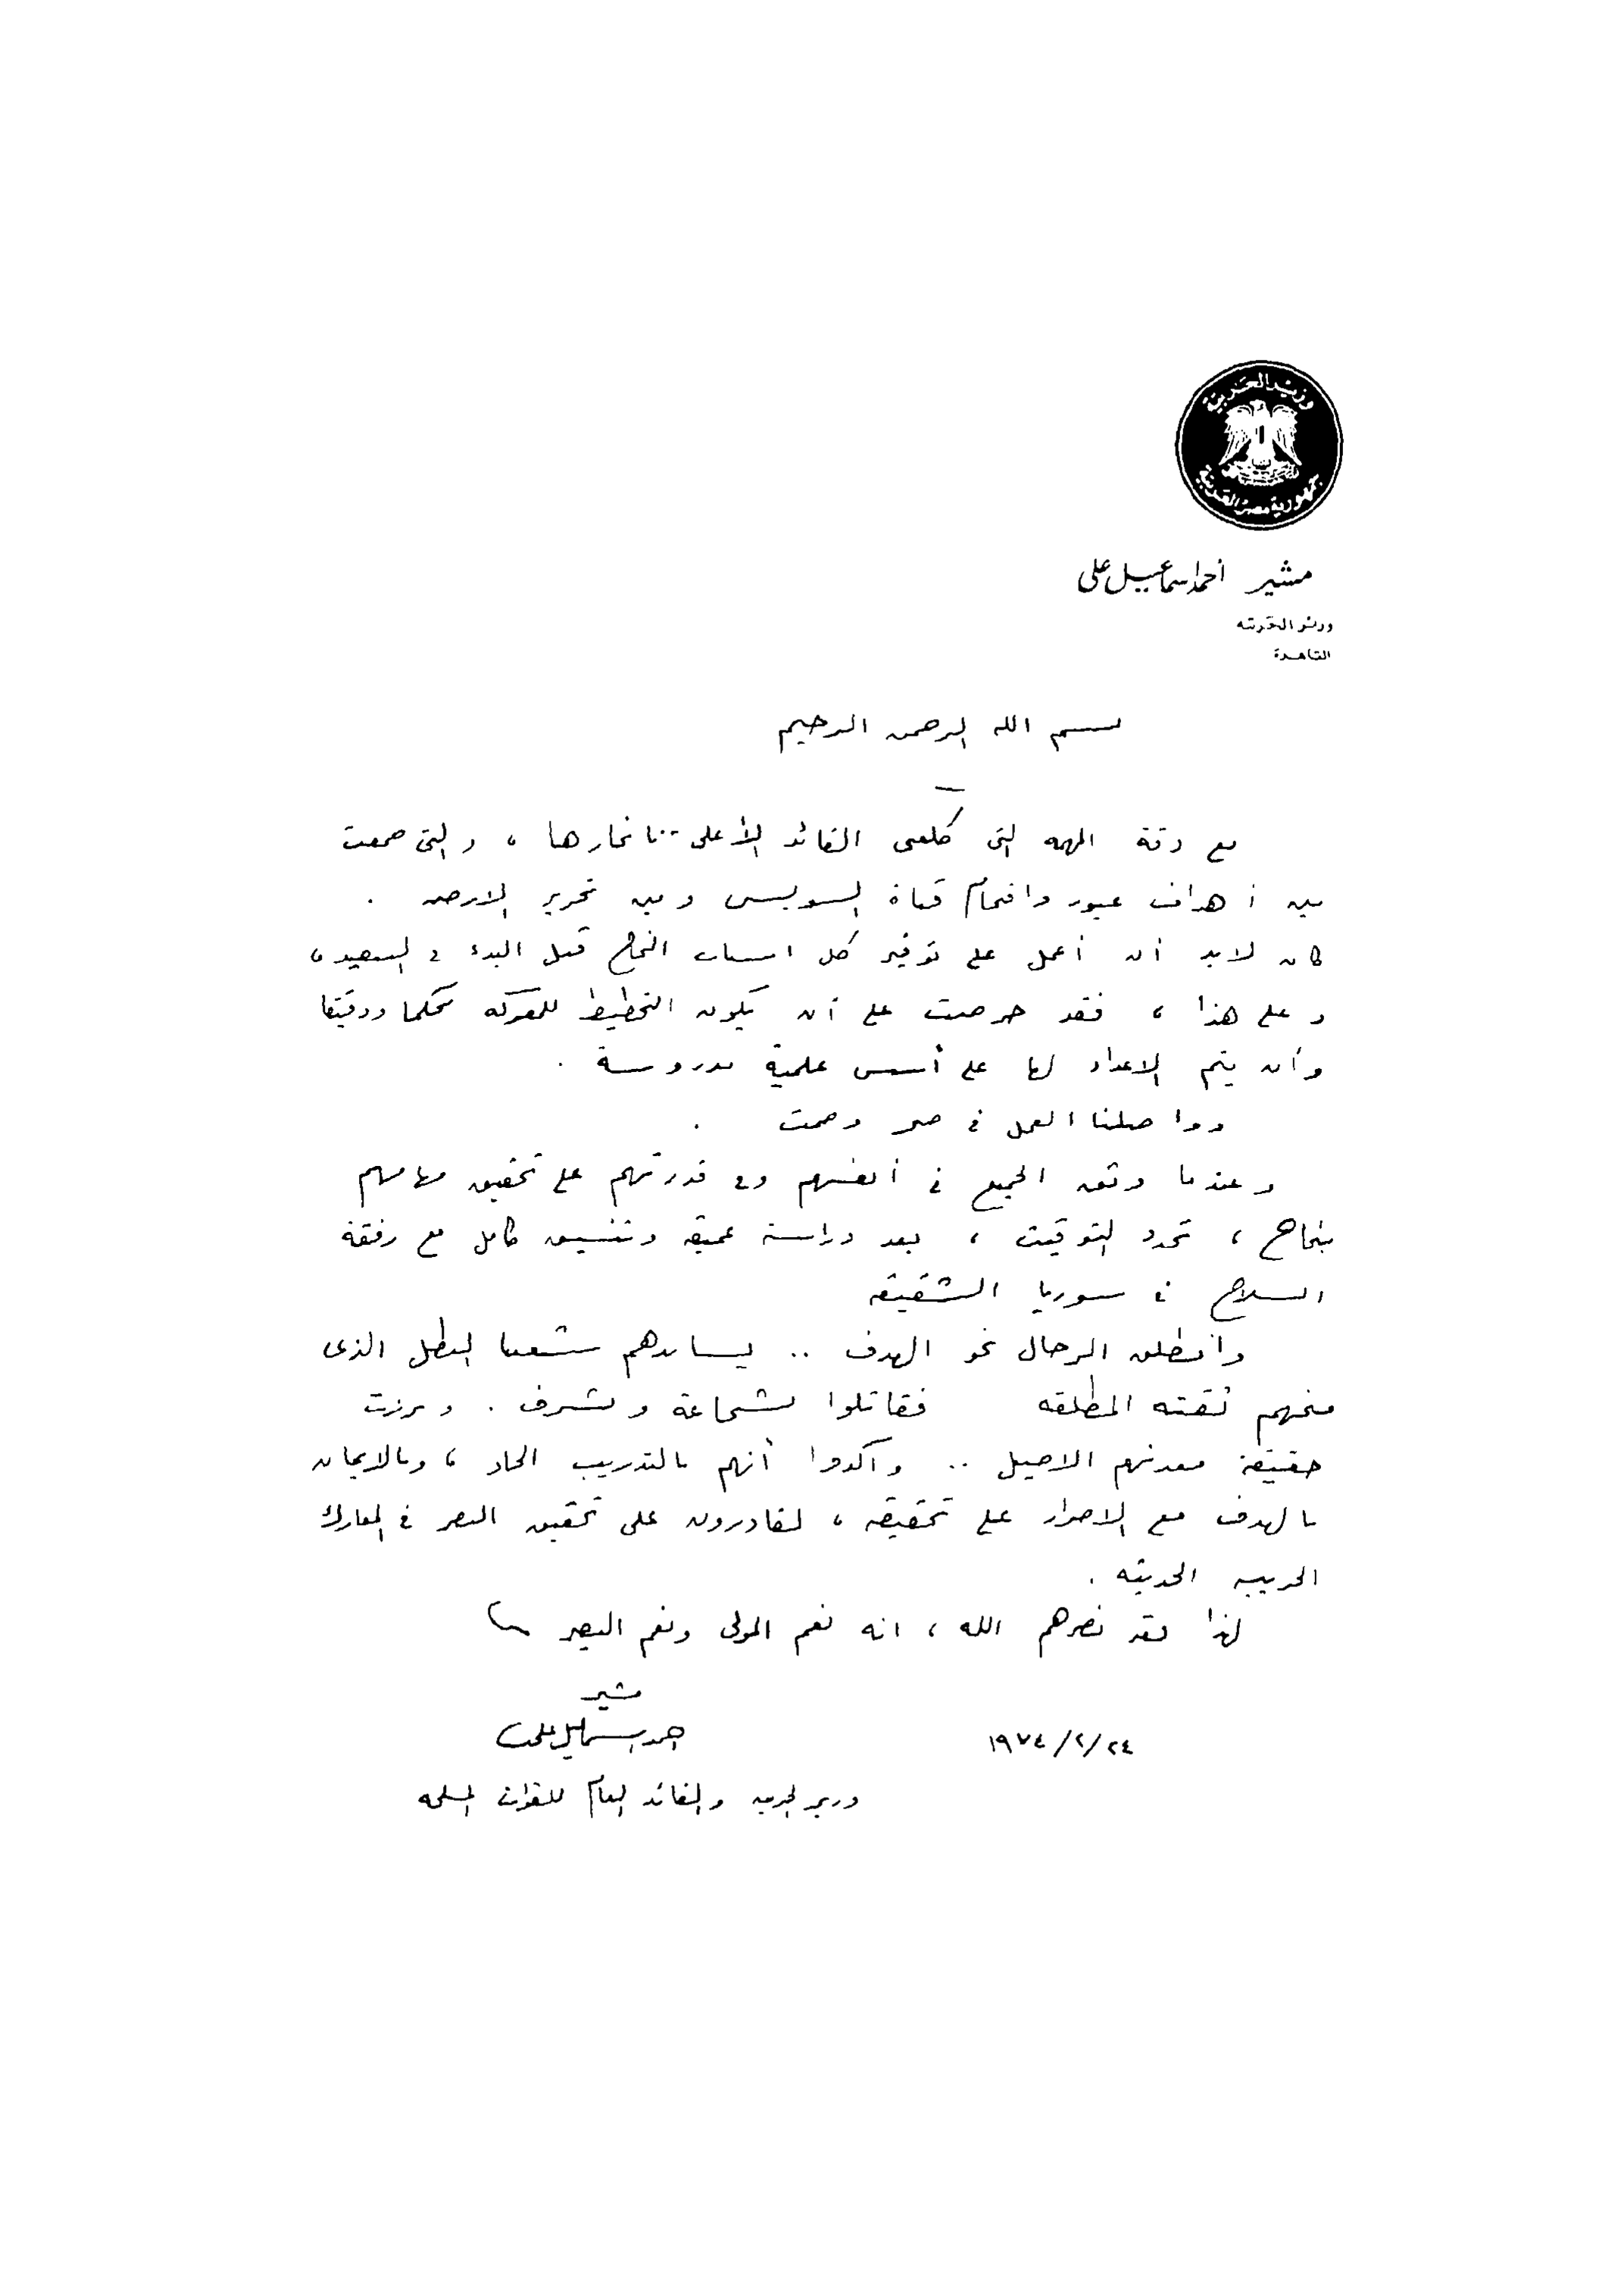 وزير الحربية
جمهورية مصر العربية
مشير أحمد اسماعيل على
وزير الحربية
القاهرة
بسم الله الرحمن الرحيم
مع دقة المهمه التى كلفنى القائد الأعلى .. بانجازها ، والتى جمعت
بين أهداف عبور واقتحام قناة السويس وبين تحرير الارض .
كان لابد أن أعمل على توفير كل اسباب النجاح قبل البدء فى التنفيذ ،
وعلى هذا ، فقد حرصت على أن يكون التخطيط للمعركه محكما ودقيقا
وأن يتم الاعداد لها على أسس علمية مدروسة .
وواصلنا العمل فى صبر وصمت .
وعندما وثق الجميع فى أنفسهم وفى قدرتهم على تحقيق مهامهم
بنجاح ، تحدد التوقيت ، بعد دراسة عميقه وتنسيق كامل مع رفقة
السلاح فى سوريا الشقيقه
وانطلق الرجال نحو الهدف .. يساندهم شعبنا البطل الذى
منحهم ثقته المطلقه فقاتلوا بشجاعة وبشرف . وبرزت
حقيقة معدنهم الاصيل .. وأكدوا أنهم بالتدريب الجاد ، وبالايمان
بالهدف مع الاصرار على تحقيقه ، لقادرون على تحقيق النصر فى المعارك
الحربيه الحديثه .
لهذا فقد نصرهم الله ، انه نعم المولى ونعم النصير
مشير
احمد اسماعيل على
١٩٧٤/٢/٢٤
وزير الحربيه والقائد العام للقوات المسلحه